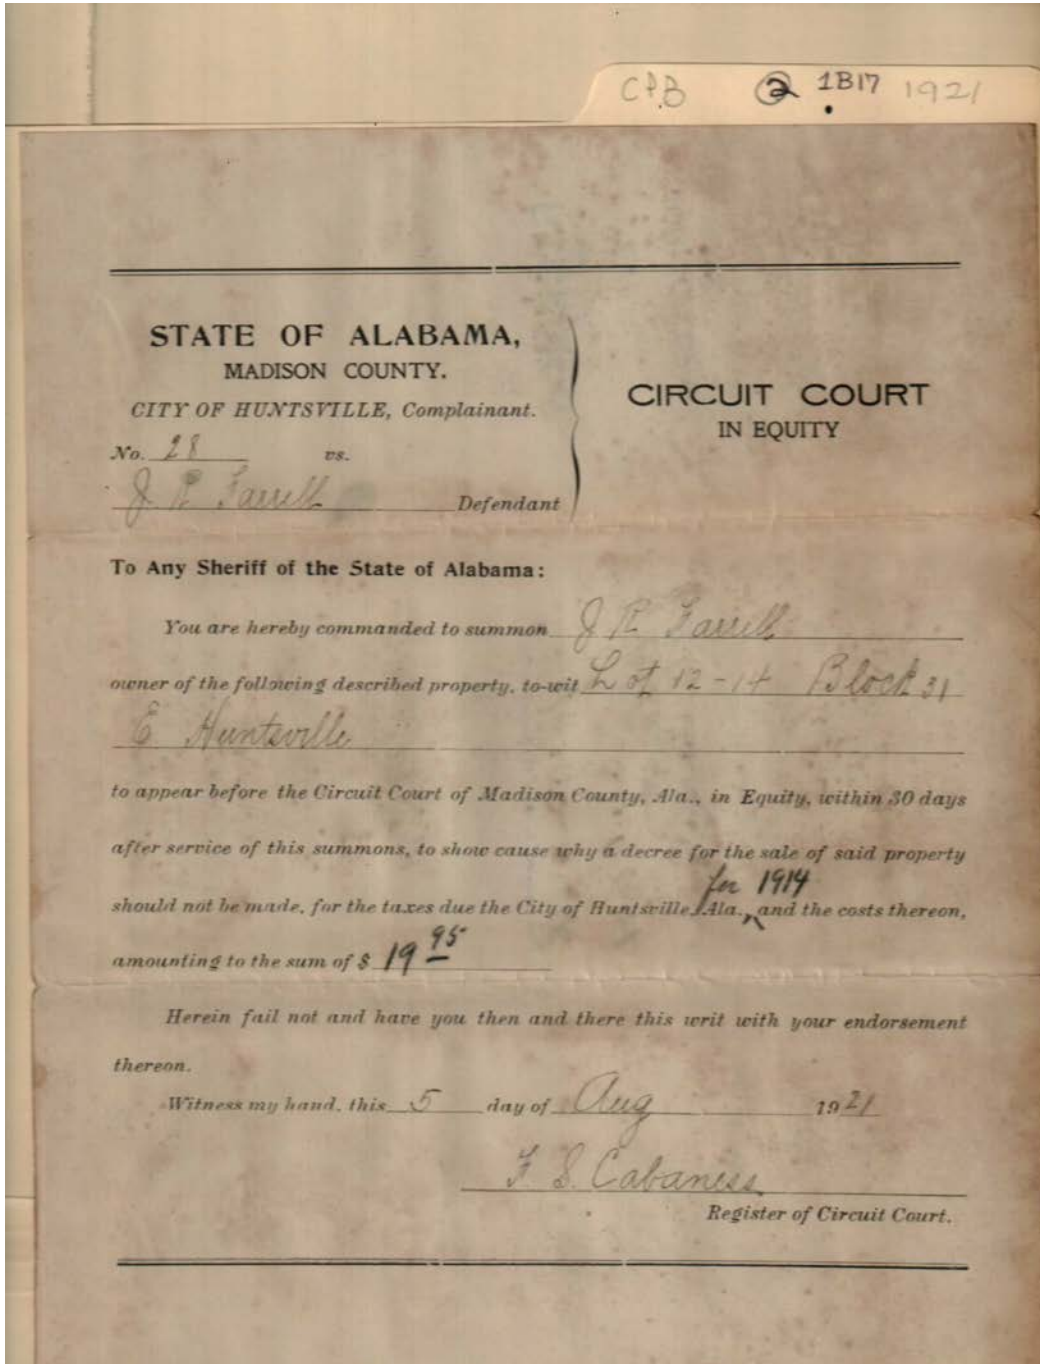 CPB ② 1B17 1921
STATE OF ALABAMA,
MADISON COUNTY.
CITY OF HUNTSVILLE, Complainant.
No. 28 vs.
J R Farrell Defendant
CIRCUIT COURT
IN EQUITY
To Any Sheriff of the State of Alabama:
You are hereby commanded to summon J R Farrell
owner of the following described property, to-wit Lot 12-14 Block 31
E. Huntsville
to appear before the Circuit Court of Madison County, Ala., in Equity, within 30 days
after service of this summons, to show cause why a decree for the sale of said property
for 1914
should not be made, for the taxes due the City of Huntsville, Ala., and the costs thereon,
amounting to the sum of $ 19 95
Herein fail not and have you then and there this writ with your endorsement
thereon.
Witness my hand, this 5 day of Aug 1921
F. S. Cabaness
Register of Circuit Court.